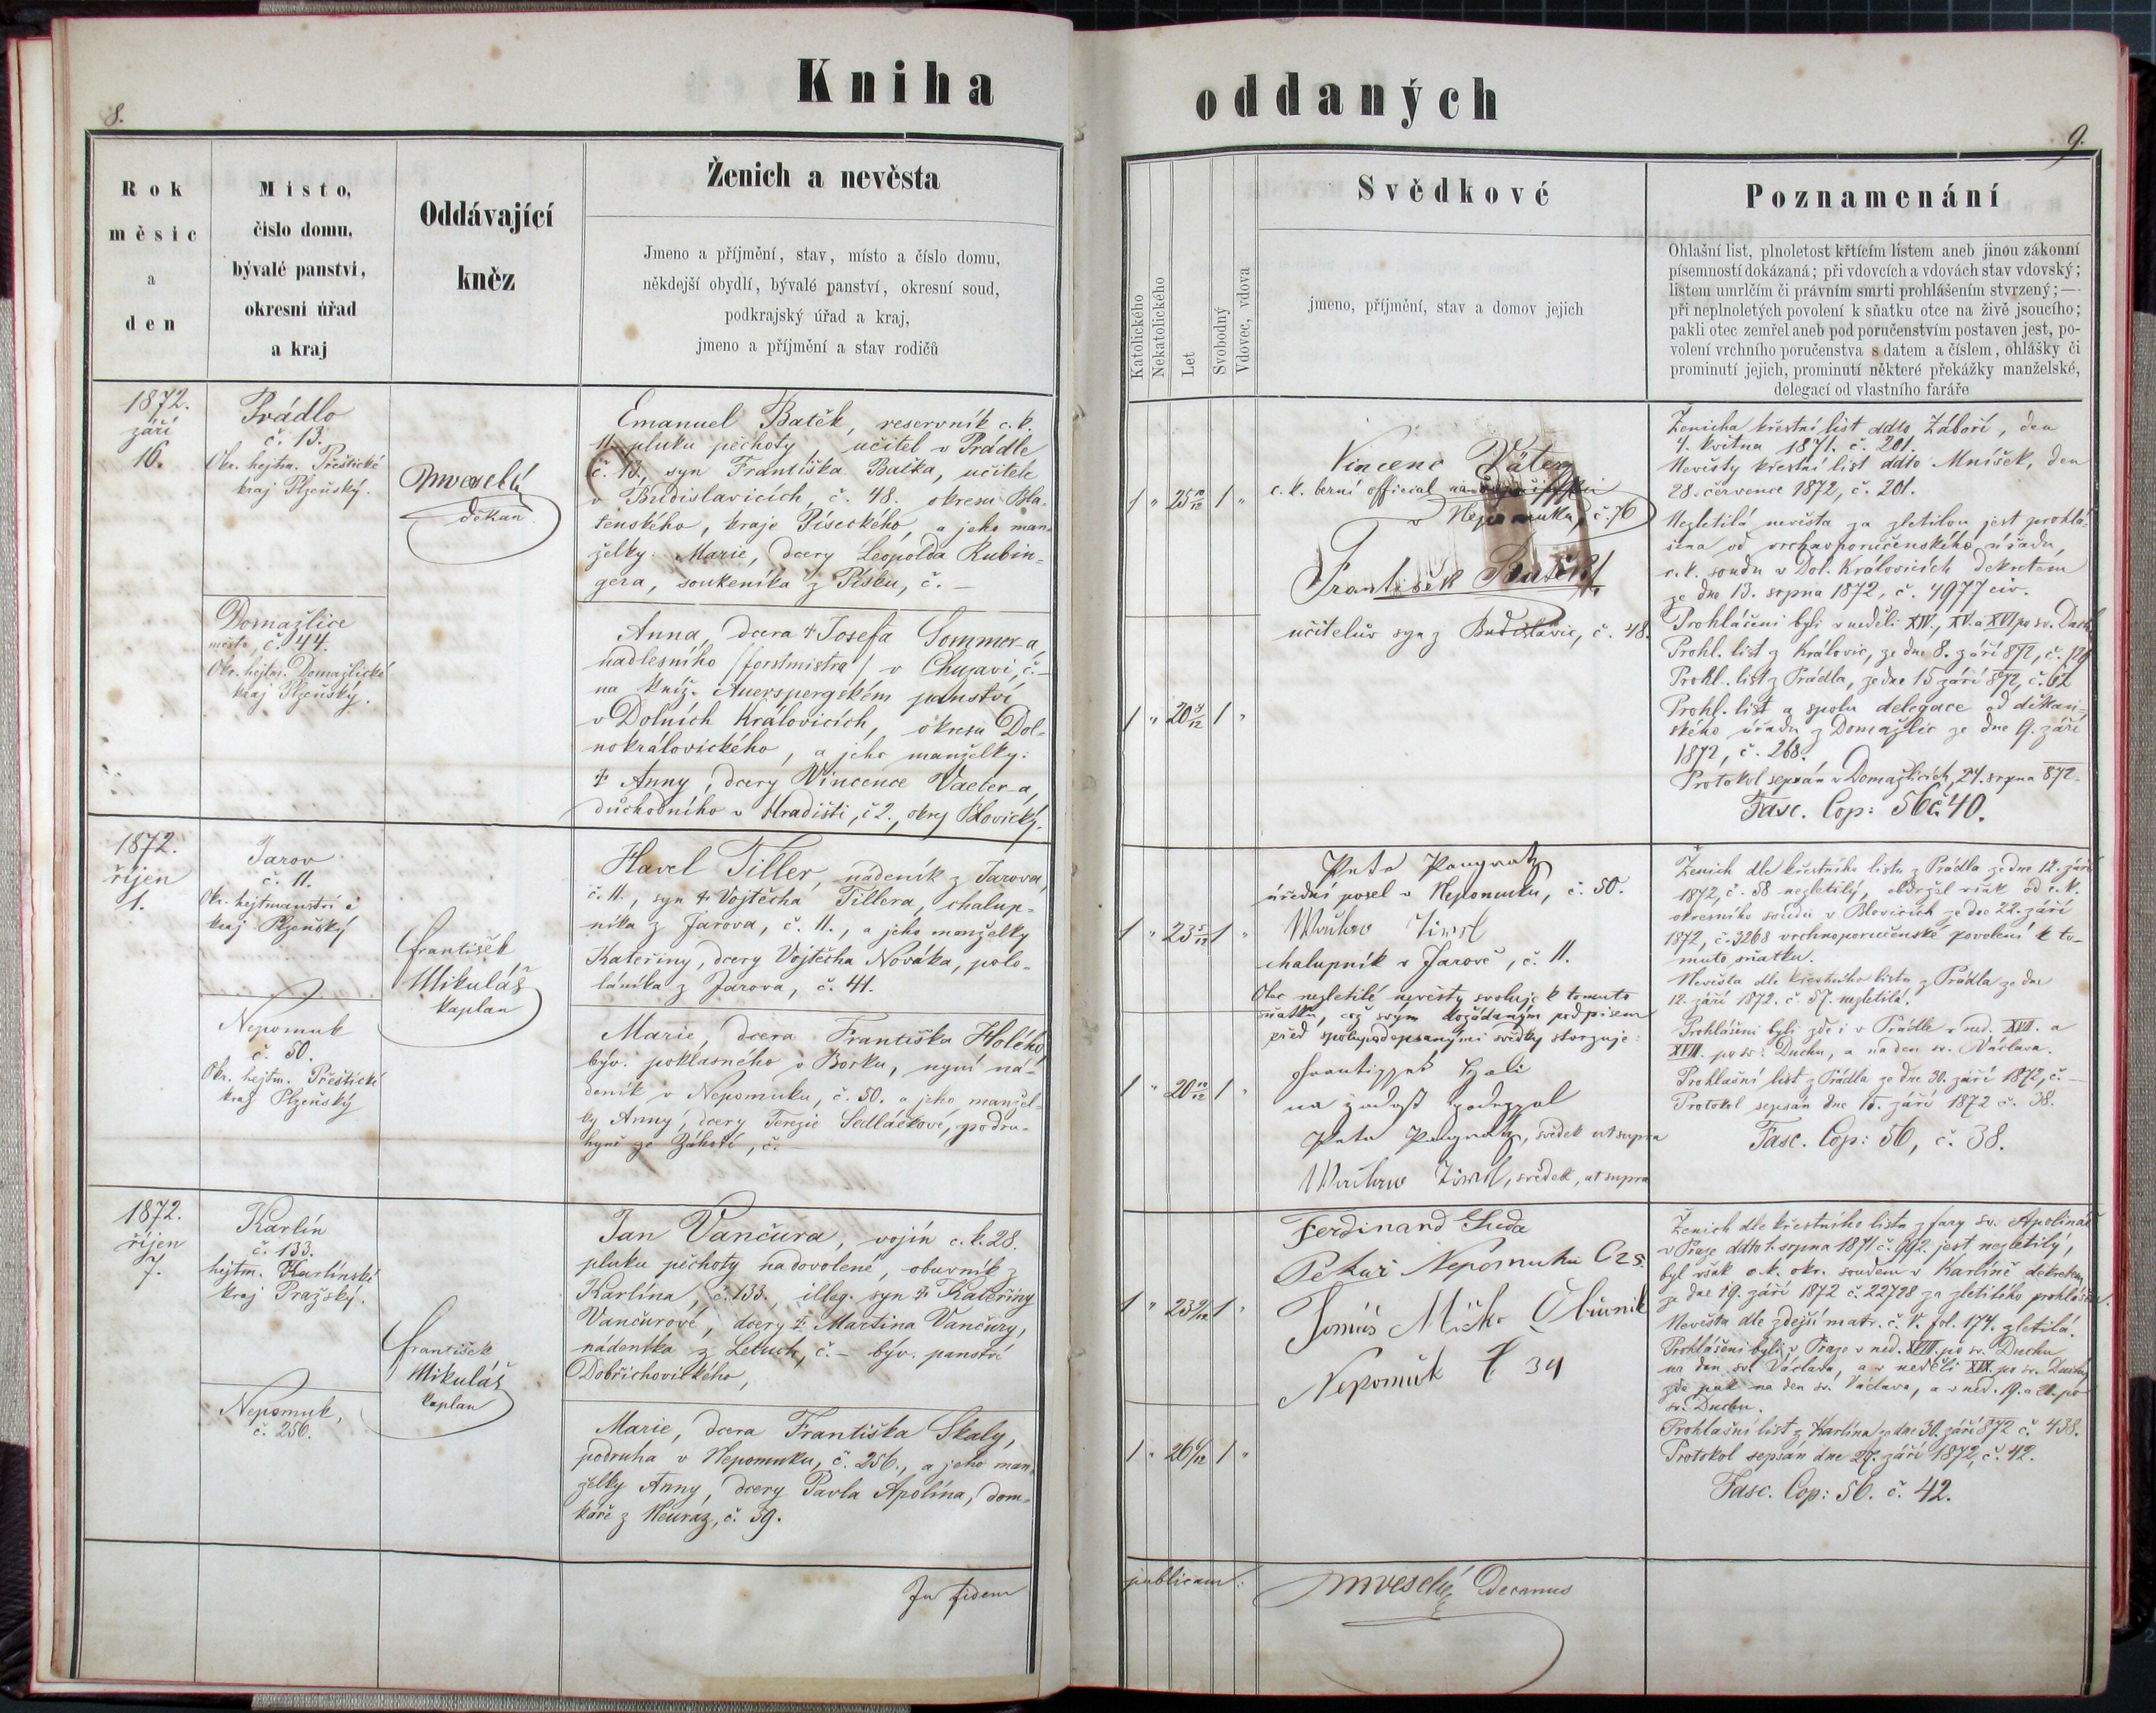 Kniha
8.
Rok
měsic
a
den
Misto,
čislo domu,
bývalé panstvi,
okresni úřad
a kraj
Oddávající
kněz
Ženich a nevěsta
Jmeno a příjmění, stav, místo a číslo domu,
někdejší obydlí, bývalé panství, okresní soud,
podkrajský úřad a kraj,
jmeno a příjmění a stav rodičů
1872.
září
16.
Prádlo
č. 13.
Okr. hejtm. Přeštické
kraj Plzeňský.
děkan
Emanuel Batěk, reservník c. k.
11. pluku pěchoty, učitel v Prádle
č. 13, syn Františka Baťka, učitele
v Budislavicích, č. 48. okresu Bla-
tenského, kraje Píseckého, a jeho man-
želky Marie, dcery Leopolda Rubin-
gera, soukeníka z Písku, č. –
Domažlice
město, č. 44.
Okr. hejtm. Domažlické
kraj Plzeňský.
Anna, dcera † Josefa Sommer-a,
nadlesního /forstmistra/ v č. –
na kníž. Auerspergském panství
v Dolních Královicích, okresu Dol-
nokrálovického, a jeho manželky:
† Anny, dcery Vincence Vaeter-a,
důchodního v Hradišti, č 2., okres Blovický.
1872.
říjen
1.
Jarov
č. 11.
Okr. hejtmanství a
kraj Plzeňský
František
Mikuláš
kaplan
Havel Tiller, nádeník z Jarova,
č. 11., syn † Vojtěcha Tillera, chalup-
níka z Jarova, č. 11., a jeho manželky
Kateřiny, dcery Vojtěcha Nováka, polo-
láníka z Jarova, č. 41.
Nepomuk
č. 50.
Okr. hejtm. Přeštické
kraj Plzeňský
Marie, dcera Františka Holého,
býv. poklasného v Borku, nyní ná-
deník v Nepomuku, č. 50. a jeho manžel-
ky Anny, dcery Terezie Sedláčkové, podru-
hyně ze Záhoří, č. –
1872.
říjen
7.
Karlín
č. 133.
hejtm. Karlínské
kraj Pražský.
František
Mikuláš
kaplan
Jan Vančura, vojín c. k. 28.
pluku pěchoty na dovolené, obuvník z
Karlína, č. 133., illeg. syn † Kateřiny
Vančurové, dcery † Martina Vančury,
nádeníka z č. – býv. panství
Dobřichovického,
Nepomuk,
č. 256.
Marie, dcera Františka Skaly,
podruha v Nepomuku, č. 256., a jeho man-
želky Anny, dcery Pavla Apolína, dom-
káře z Neuraz, č. 59.
In fidem
oddaných
9.
Katolického
Nekatolického
Let
Svobodný
Vdovec, vdova
Svědkové
jmeno, příjmění, stav a domov jejich
Poznamenání
Ohlašní list, plnoletost křtícím listem aneb jinou zákonní
písemností dokázaná; při vdovcích a vdovách stav vdovský;
listem umrlčím či právním smrti prohlášením stvrzený; —
při neplnoletých povolení k sňatku otce na živě jsoucího;
pakli otec zemřel aneb pod poručenstvím postaven jest, po-
volení vrchního poručenstva s datem a číslem, ohlášky či
prominutí jejich, prominutí některé překážky manželské,
delegací od vlastního faráře
1 " 25 10/12 1 "
Vincenc Väter
c. k. berní official
v Nepomuku, č. 76
František Batěk
učitelův syn z Budislavic, č. 48.
1 " 20 9/12 1 "
Ženicha křestní list ddto Záboří, den
4. května 1871. č. 201.
Nevěsty křestní list ddto Mníšek, den
28. července 1872, č. 201.
Nezletilá nevěsta za zletilou jest prohlá-
šena od vrchnoporučenského úřadu,
c. k. soudu v Dol. Královicích dekretem
ze dne 13. srpna 1872, č. 4977 civ.
Prohlášeni byli v neděli XIV., XV. a XVI po sv. Duchu
Prohl. list z Královic, ze dne 8. září 872, č.
Prohl. list z Prádla, ze dne 15 září 872, č. 62
Prohl. list a spolu delegace od děkan-
ského úřadu z Domažlic ze dne 9. září
1872, č. 268.
Protokol sepsán v Domažlicích, 24. srpna 872.
Fasc. Cop: 56 č. 40.
1 " 23 5/12 1 "
úřední posel v Nepomuku, č. 50.
chalupník v Jarově, č. 11.
Otec nezletilé nevěsty svoluje k tomuto
sňatku, což svým dožádaným podpisem
před spolupodepsanými svědky stvrzuje:
1 " 20 10/12 1 "
svědek ut supra
svědek, ut supra
Ženich dle křestního listu z Prádla ze dne 12. září
1872, č. 58 nezletilý, obdržel však od c. k.
okresního soudu v Blovicích ze dne 22. září
1872, č. 3268 vrchnoporučenské povolení k to-
muto sňatku.
Nevěsta dle křestního listu z Prádla ze dne
12. září 1872. č. 57. nezletilá.
Prohlášeni byli zde i v Prádle v ned. XVII. a
XVIII. po sv. Duchu, a na den sv. Václava.
Prohlašní list z Prádla ze dne 30. září 1872, č. –
Protokol sepsán dne 15. září 1872 č. 38.
Fasc. Cop: 56, č. 38.
1 " 23 1 "
Ferdinand Suda
Pekař Nepomuku
Tomáš Obuvník
Nepomuk č 34
1 " 26 1 "
Ženich dle křestního listu z fary sv. Apolináře
v Praze ddto 1. srpna 1871 č. 992. jest nezletilý,
byl však c. k. okr. soudem v Karlíně dekretem
ze dne 19. září 1872 č. 22728 za zletilého prohlášen.
Nevěsta dle zdejší matr. č. V. fol. 174. zletilá.
Prohlášeni byli v Praze v ned. XVIII. po sv. Duchu
na den sv. Václava, a v neděli XIX. po sv. Duchu,
zde pak na den sv. Václava, a v ned. 19. a 20. po
sv. Duchu.
Prohlašní list z Karlína ze dne 30. září 872 č. 438.
Protokol sepsán dne 27. září 1872, č. 42.
Fasc. Cop: 56. č. 42.
publicam:
Decanus